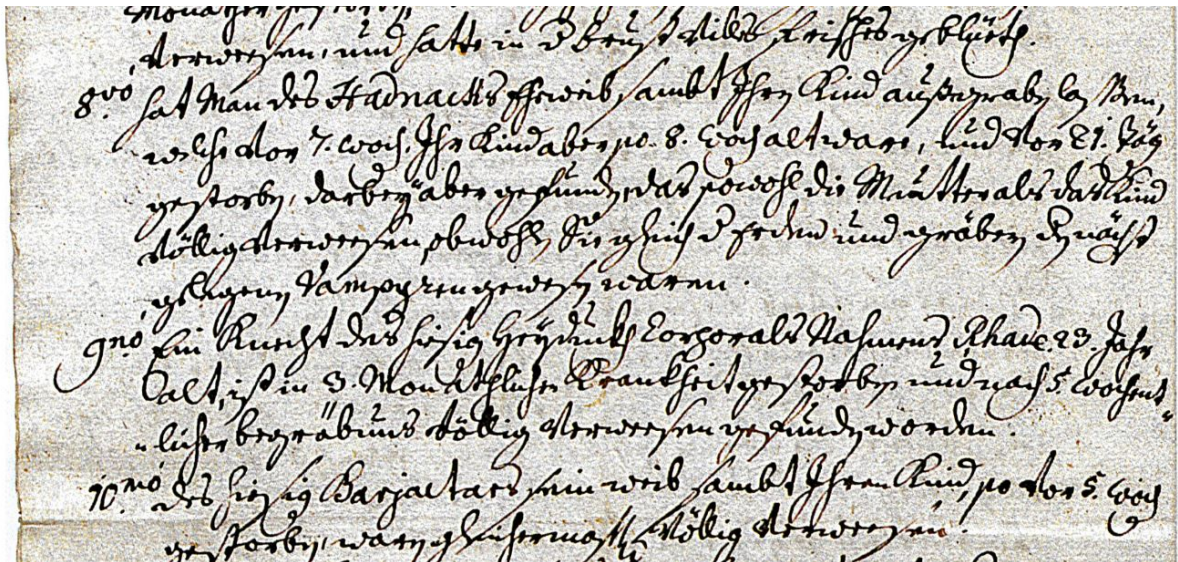 verwesen, und hatte in d brust villes frisches geblüeth.
8vo. hat Man des Hadnacks Eheweib sambt Ihren Kind außgraben lassen,
welche vor 7. woch. Ihr Kind aber so 8. woch alt ware, und vor 21. täg
gestorben, darbey aber gefunden, das sowohl die Mutter als das Kind
völlig verwesen, obwohlen Sie gleich d Erden und gräben den nächst
gelegenen Vampyren gewesen waren.
9no. Ein Knecht des hiesigen Heydukhen Corporals Nahmens Rhade 23. Jahr
alt, ist in 3. Monathlicher Krankheit gestorben und nach 5. wochent-
licher begräbnus völlig verwesen gefunden worden.
10mo. des hiesigen Barjactars sein weib sambt Ihren Kind, so vor 5. woch
gestorben, waren gleichermassen völlig verwesen.